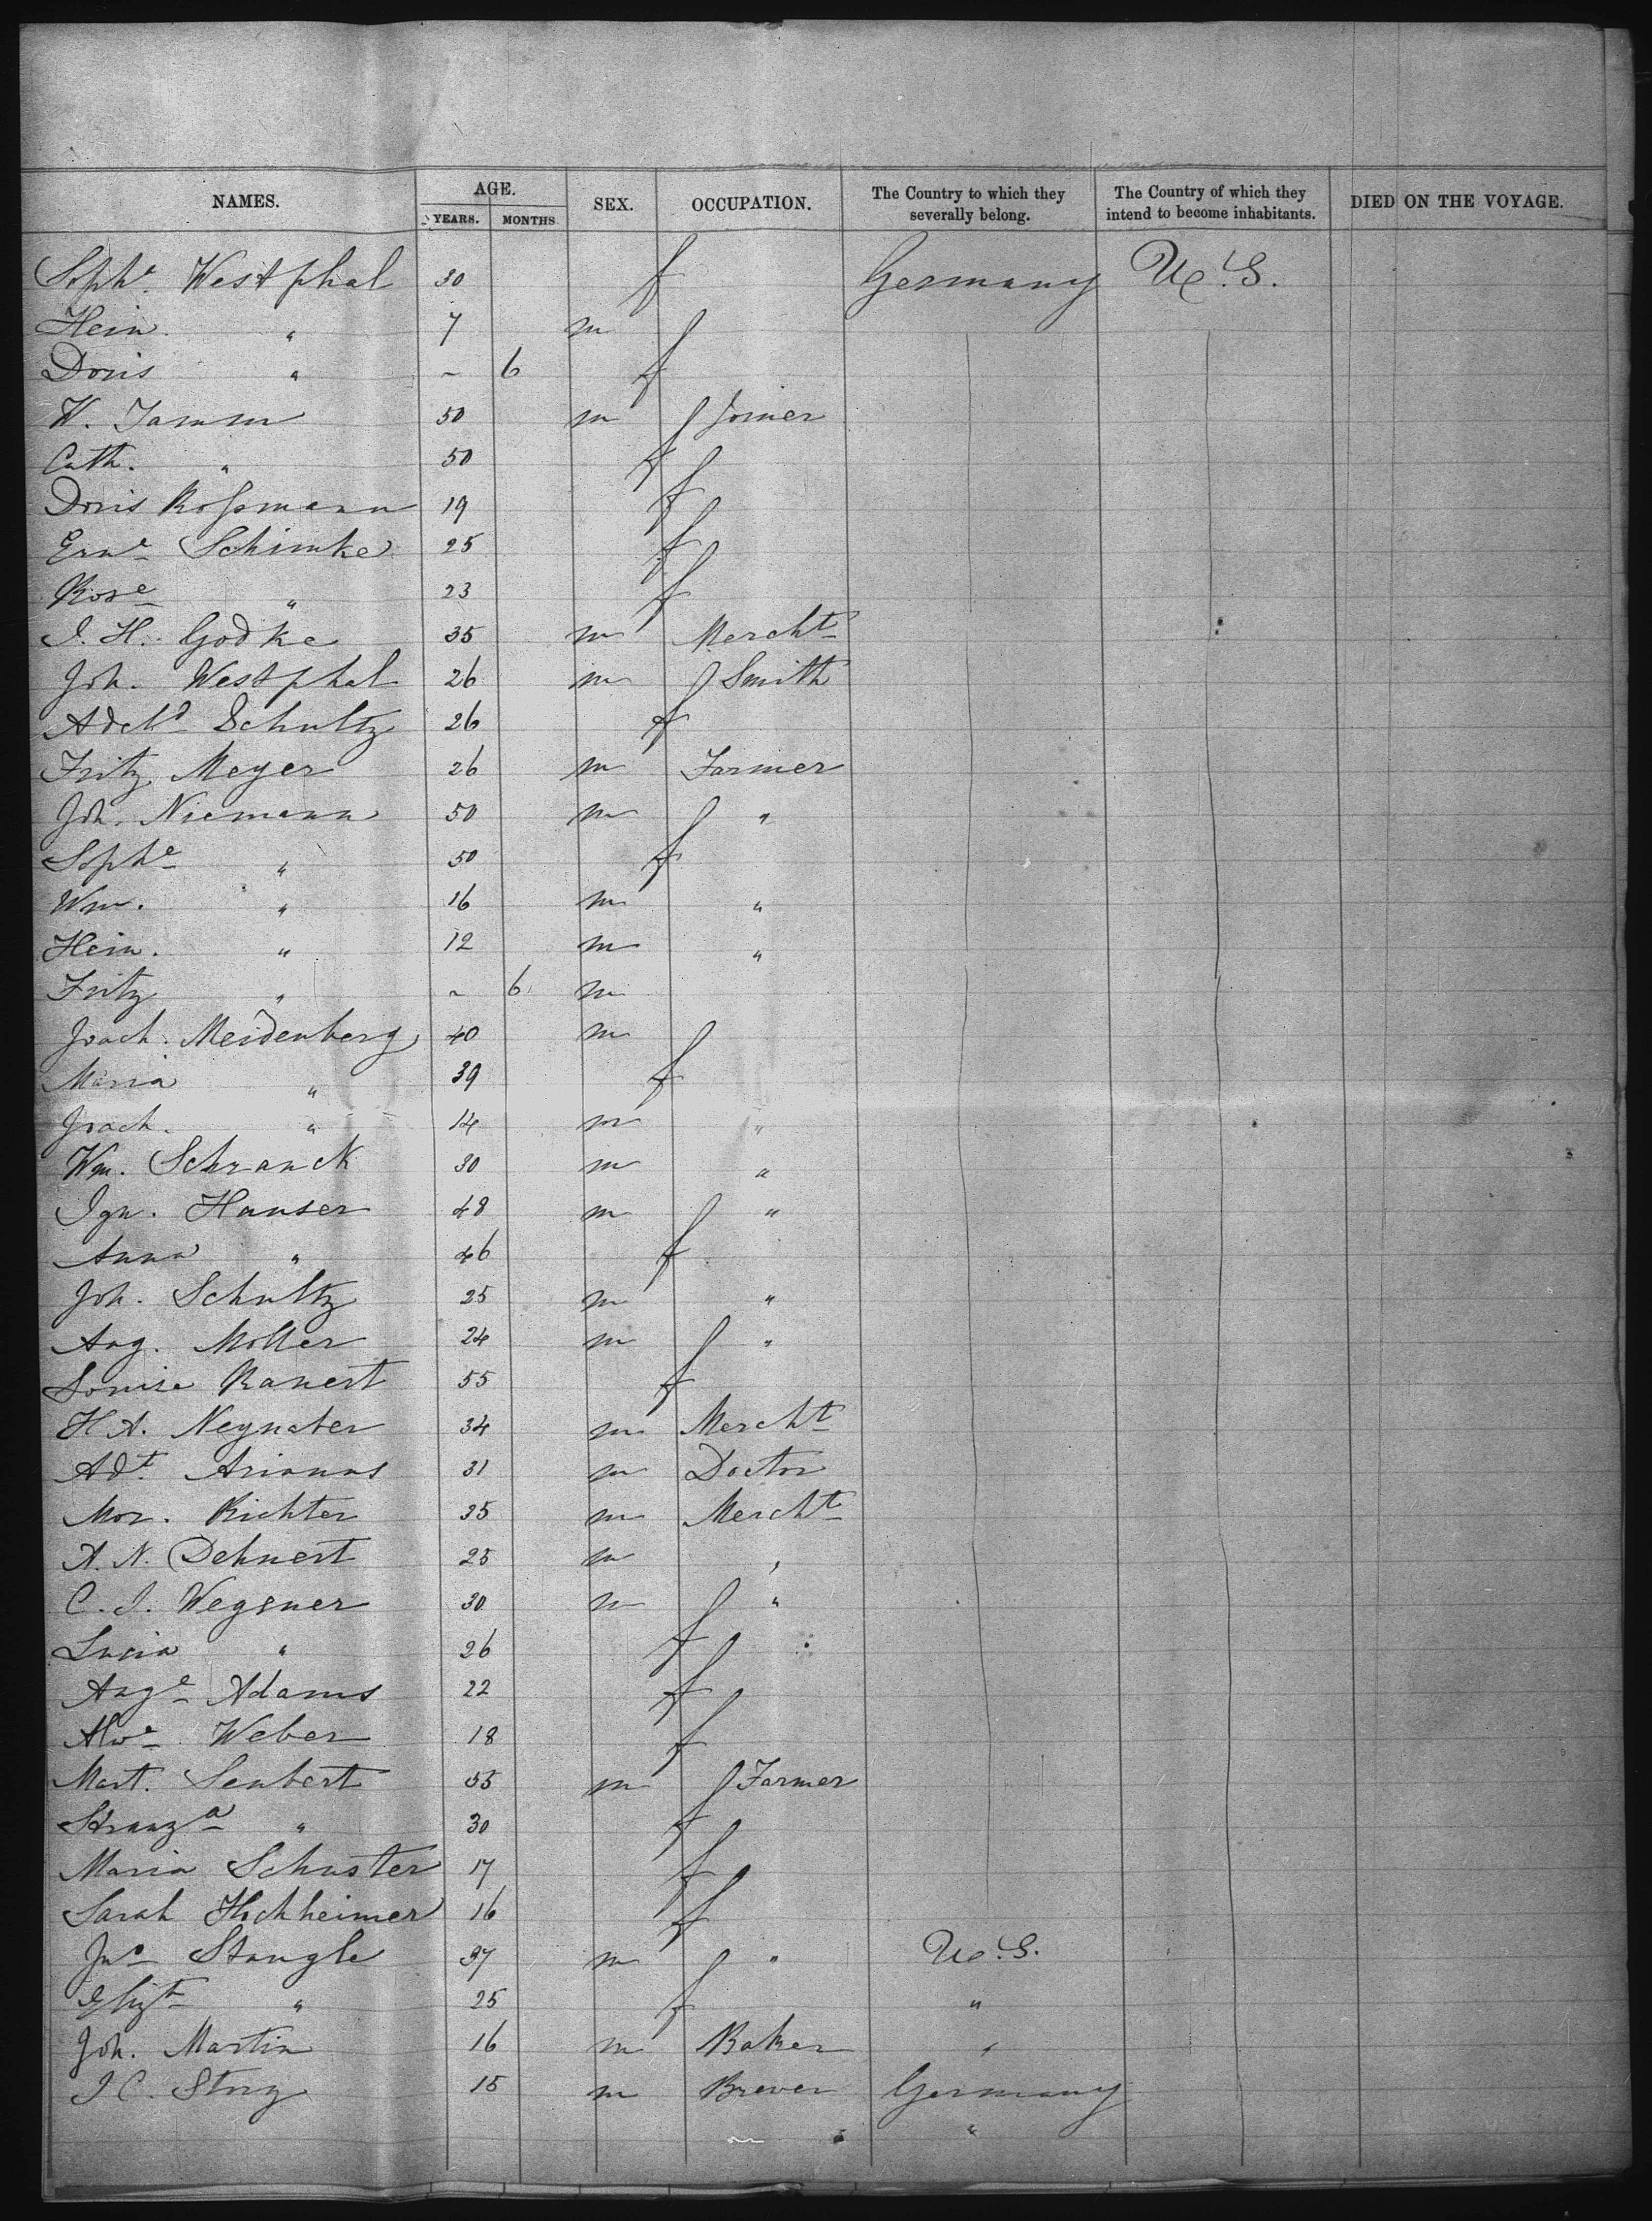 NAMES. AGE. SEX. OCCUPATION. The Country to which they severally belong. The Country of which they intend to become inhabitants. DIED ON THE VOYAGE.
YEARS. MONTHS
Sophe. Westphal 30 f Germany U.S.
Hein. " 7 m
Doris " ~ 6 f
W. Tamm 50 m Joiner
Cath. " 50 f
Doris Roßmann 19 f
Erne Schimke 25 f
Rose " 23 f
J. H. Godke 35 m Mercht
Joh. Westphal 26 m Smith
Adeld Schultz 26 f
Fritz Meyer 26 m Farmer
Joh. Niemann 50 m "
Sophe " 50 f
Wm. " 16 m "
Hein. " 12 m "
Fritz " ~ 6 m
Joach. Meidenberg 40 m
Maria " 39 f
Joach. " 14 m "
Wm. Schranck 30 m "
Ign. Hauser 48 m "
Anna " 46 f
Joh. Schultz 25 m "
Aug. Moller 24 m "
Louise Ranert 55 f
H A. Neynaber 34 m Mercht
Adt. Arianus 31 m Doctor
Mor. Richter 35 m Mercht
A. N. Dehnert 25 m "
C. J. Wegener 30 m "
Lucia " 26 f
Auge Adams 22 f
Alwe Weber 18 f
Mart. Seubert 55 m Farmer
" 30 f
Maria Schuster 17 f
Sarah Hochheimer 16 f
Jno Stangle 37 m " U.S.
Elizt " 25 f "
Joh. Martin 16 m Baker "
J C. Story 15 m Brewer Germany
"